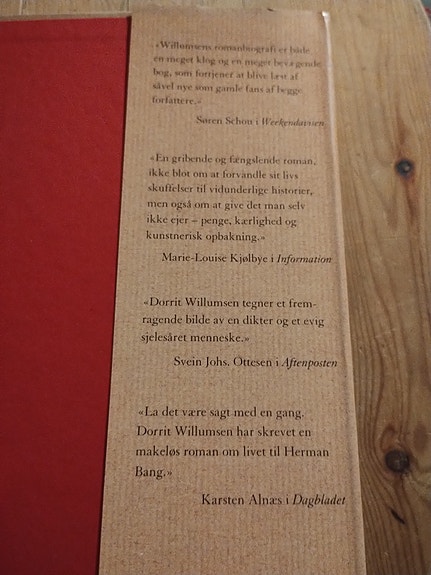 «Willumsens romanbiografi er både
en meget klog og en meget bevægende
bog, som fortjener at blive læst af
såvel nye som gamle fans af begge
forfattere.»
Søren Schou i Weekendavisen
«En gribende og fængslende roman,
ikke blot om at forvandle sit livs
skuffelser til vidunderlige historier,
men også om at give det man selv
ikke ejer – penge, kærlighed og
kunstnerisk opbakning.»
Marie-Louise Kjølbye i Information
«Dorrit Willumsen tegner et frem-
ragende bilde av en dikter og et evig
sjelesåret menneske.»
Svein Johs. Ottesen i Aftenposten
«La det være sagt med en gang.
Dorrit Willumsen har skrevet en
makeløs roman om livet til Herman
Bang.»
Karsten Alnæs i Dagbladet